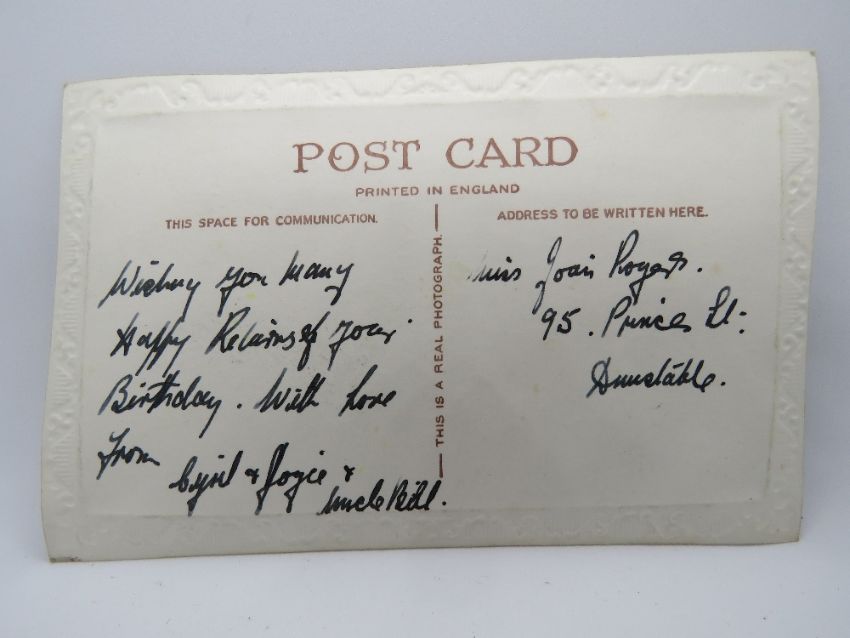 POST CARD
PRINTED IN ENGLAND
THIS SPACE FOR COMMUNICATION.
Wishing you Many
Happy Returns of your
Birthday. With Love
from
Cyril & Joyce &
Uncle Bill.
THIS IS A REAL PHOTOGRAPH.
ADDRESS TO BE WRITTEN HERE.
Miss Joan Rogers.
95. Princes St:
Dunstable.